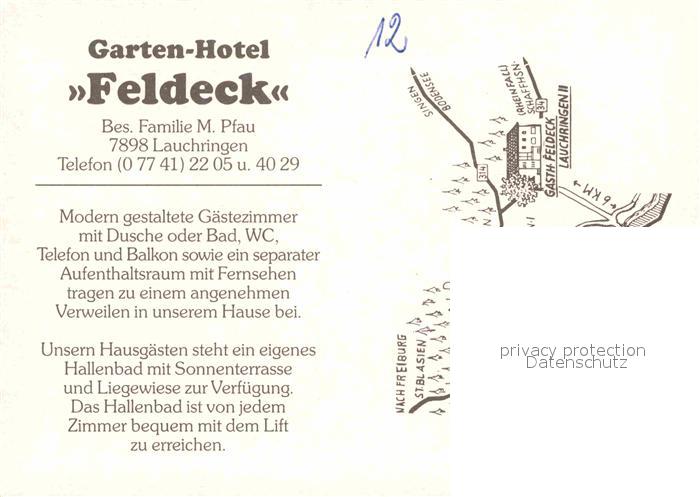 Garten-Hotel
»Feldeck«
Bes. Familie M. Pfau
7898 Lauchringen
Telefon (0 77 41) 22 05 u. 40 29
Modern gestaltete Gästezimmer
mit Dusche oder Bad, WC,
Telefon und Balkon sowie ein separater
Aufenthaltsraum mit Fernsehen
tragen zu einem angenehmen
Verweilen in unserem Hause bei.
Unsern Hausgästen steht ein eigenes
Hallenbad mit Sonnenterrasse
und Liegewiese zur Verfügung.
Das Hallenbad ist von jedem
Zimmer bequem mit dem Lift
zu erreichen.
12
SINGEN
BODENSEE
(RHEINFALL)
SCHAFFHSN.
34
GASTH. FELDECK
LAUCHRINGEN II
314
6 KM
NACH FREIBURG
ST. BLASIEN
privacy protection
Datenschutz